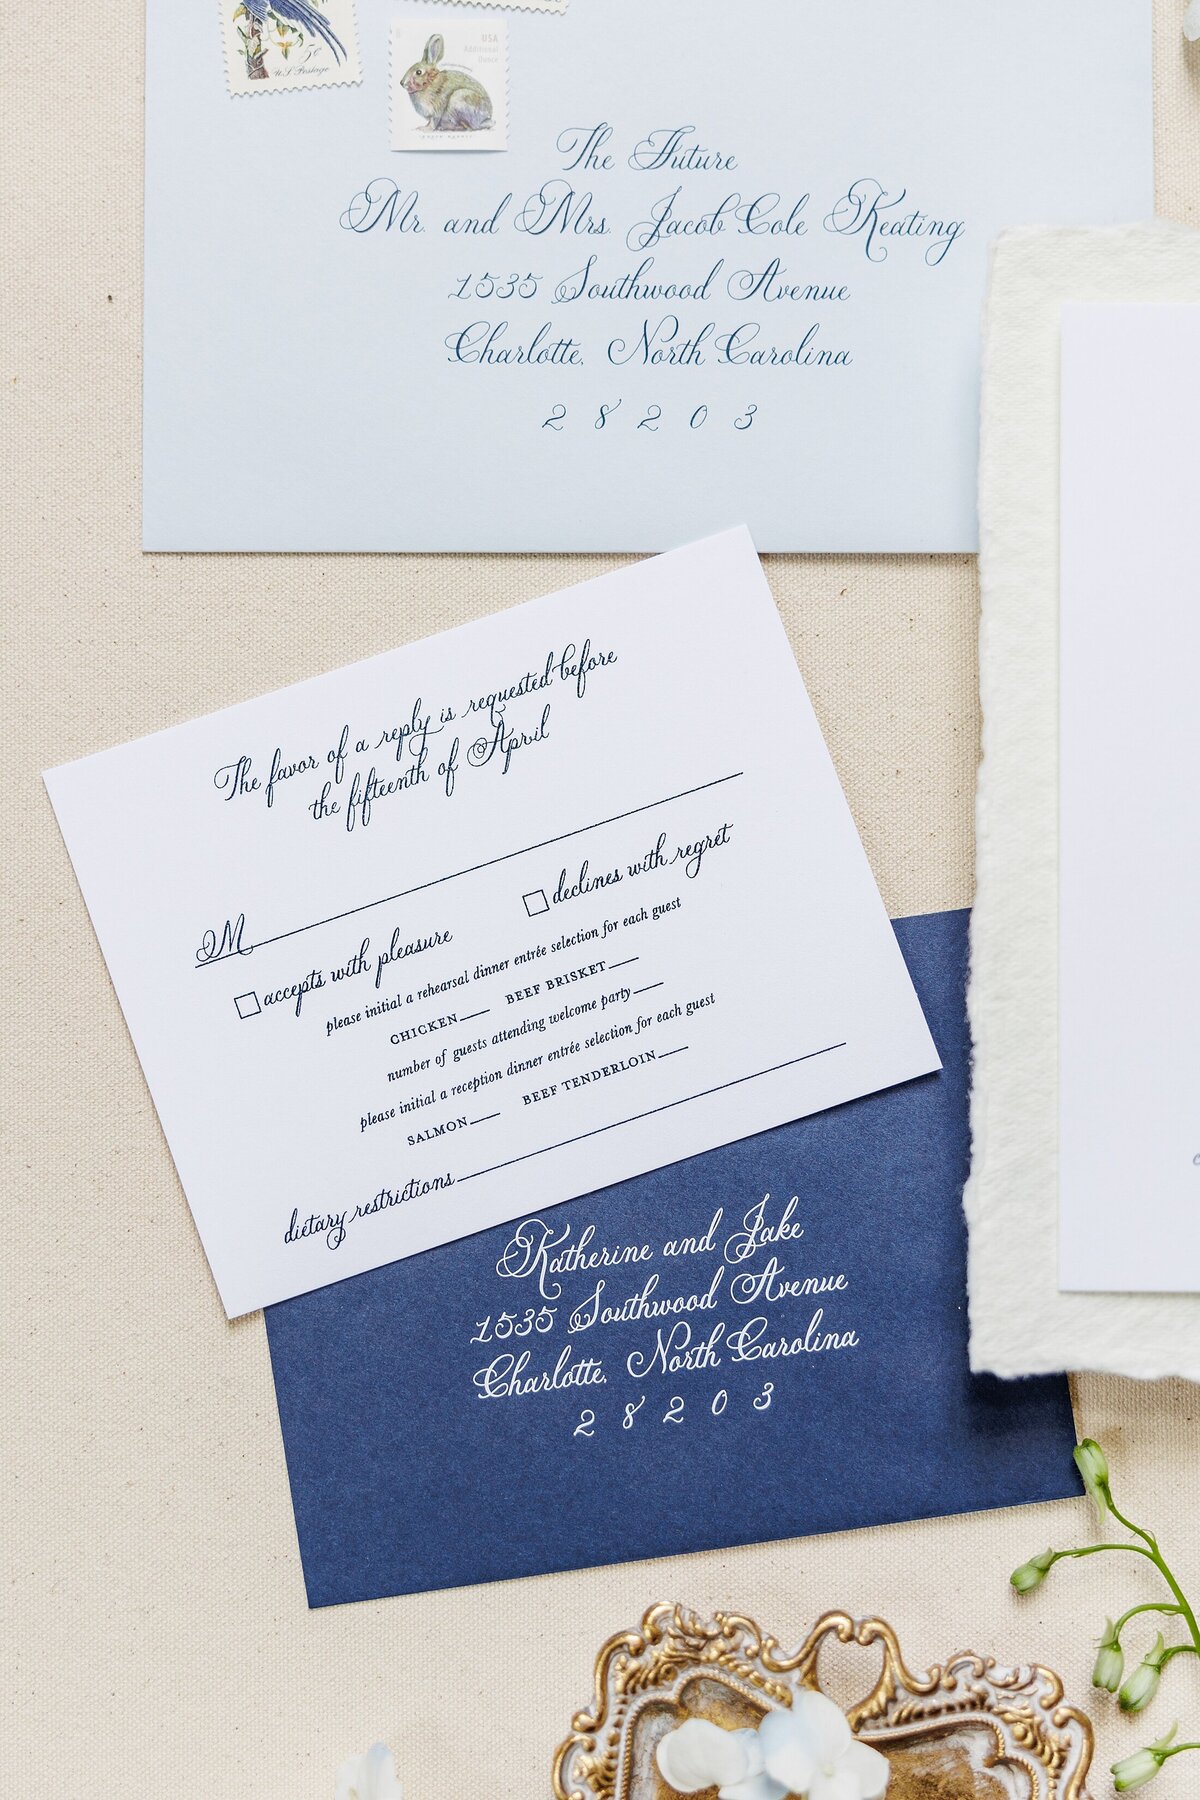 5¢
U.S. Postage
USA
Additional
Ounce
The Future
Mr. and Mrs. Jacob Cole Keating
1535 Southwood Avenue
Charlotte, North Carolina
28203
The favor of a reply is requested before
the fifteenth of April
M
accepts with pleasure
declines with regret
please initial a rehearsal dinner entrée selection for each guest
CHICKEN BEEF BRISKET
number of guests attending welcome party
please initial a reception dinner entrée selection for each guest
SALMON BEEF TENDERLOIN
dietary restrictions
Katherine and Jake
1535 Southwood Avenue
Charlotte, North Carolina
28203